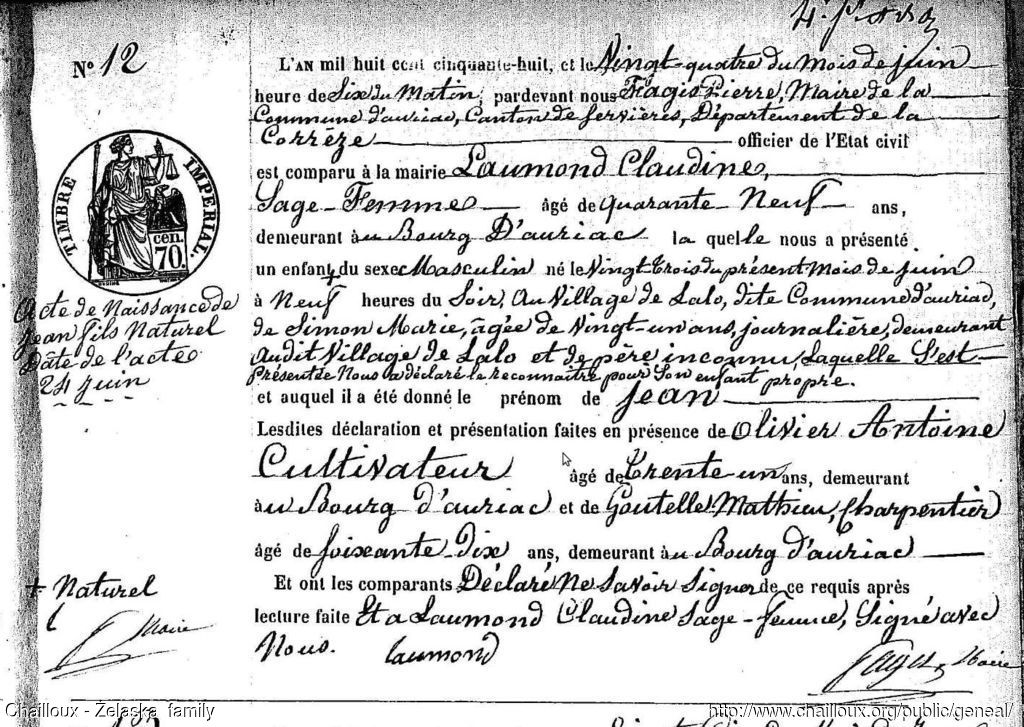 Nº 12
L'AN mil huit cent cinquante-huit, et le Vingt-quatre du mois de juin
heure de Six du Matin, pardevant nous Fagis Pierre, Maire de la
Commune d'auriac, Canton de Servières, Département de la
Corrèze officier de l'Etat civil
est comparu à la mairie Laumond Claudine,
Sage-Femme âgé de quarante-Neuf ans,
demeurant à u Bourg D'auriac la quelle nous a présenté
un enfant + du sexe Masculin né le Vingt trois du présent mois de juin
à Neuf heures du Soir, Au Village de Lalo, dite Commune d'auriac,
de Simon Marie, âgée de Vingt-un ans, journalière, demeurant
Audit Village de Lalo et de père inconnu, Laquelle S'est
Présentée Nous a déclaré le reconnaître pour Son enfant propre.
et auquel il a été donné le prénom de jean
Lesdites déclaration et présentation faites en présence de Olivier Antoine
Cultivateur âgé de trente-un ans, demeurant
à u Bourg d'auriac et de Goutelle Mathieu, Charpentier
âgé de soixante-Dix ans, demeurant à u Bourg d'auriac
Et ont les comparants Déclaré Ne Savoir Signer de ce requis après
lecture faite Et a Laumond Claudine Sage-femme, Signé avec
Nous. Laumond
Maire
TIMBRE IMPERIAL.
70 cen.
Acte de Naissance de
jean fils Naturel
Date de l'acte
24 juin
+ Naturel
Maire
Chailloux - Żelaska family
http://www.chailloux.org/public/geneal/